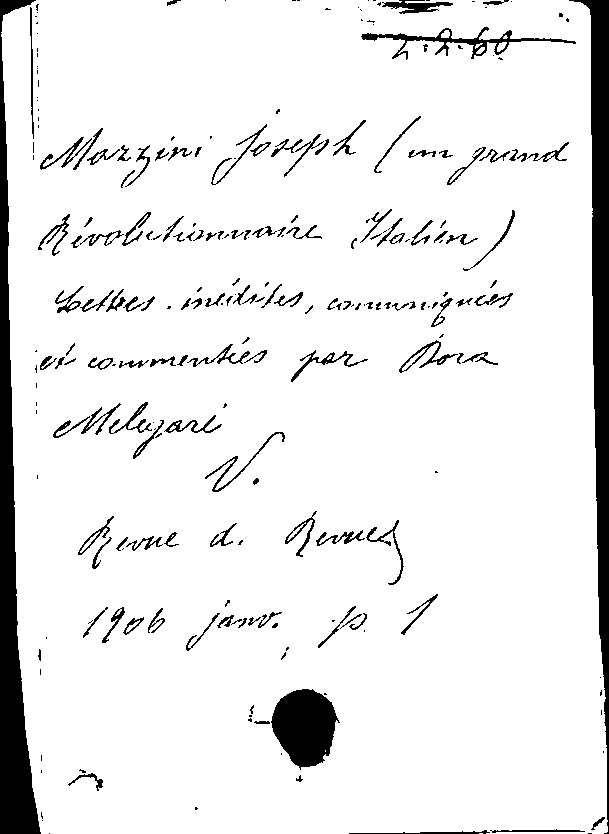 2.2.60
Mazzini Joseph (un grand
Révolutionnaire Italien)
Lettres inédites, communiquées
et commentées par Dora
Melegari
V.
Revue d. Revues
1906 janv. p. 1